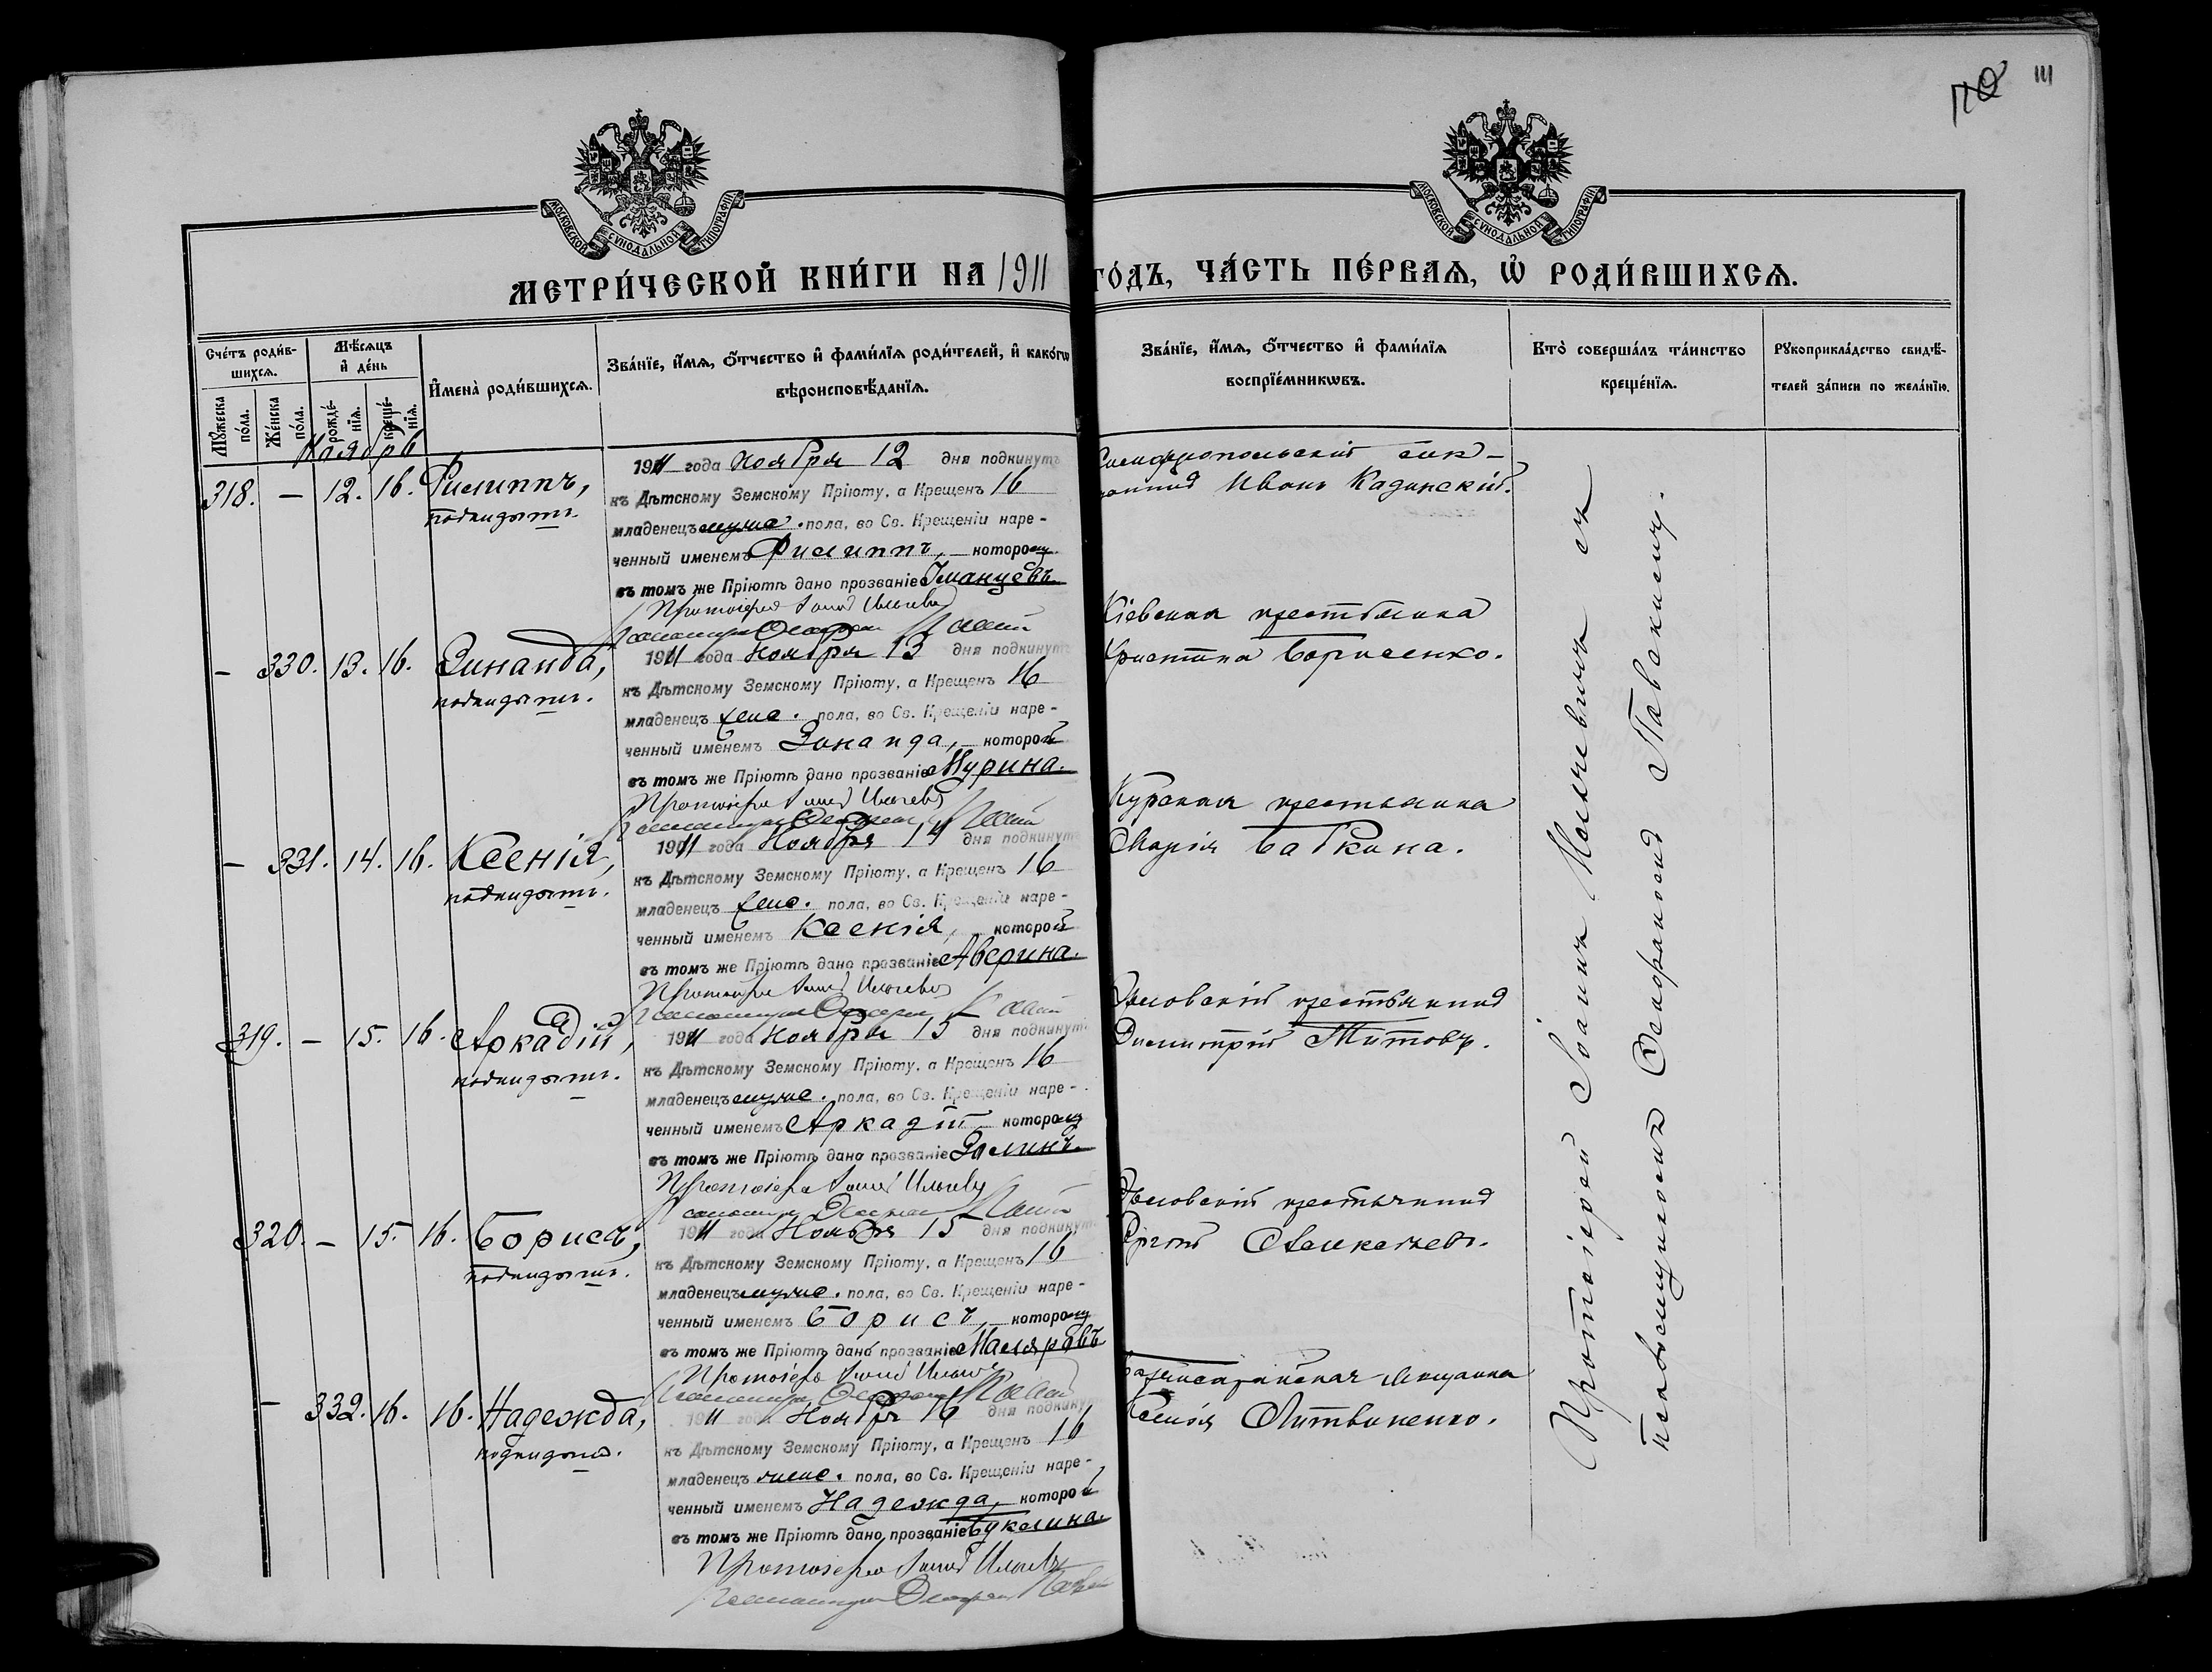 110 111
МОСКОВСКОЙ СѴНОДАЛЬНОЙ ТИПОГРАФІИ
МОСКОВСКОЙ СѴНОДАЛЬНОЙ ТИПОГРАФІИ
МЕТРИ́ЧЕСКОЙ КНИ́ГИ НА 1911 ГО́ДЪ, ЧА́СТЬ ПЕ́РВАЯ, Ѡ҆ РОДИ́ВШИХСЯ.
Сче́тъ роди́в-
шихся.
Мꙋ́жеска по́ла.
Же́нска по́ла.
Мѣ́сяцъ
и҆ де́нь
рожде́-
нїя.
креще́-
нїя.
И҆мена̀ роди́вшихся.
Зва́нїе, и҆́мя, ѻ҆́тчество и҆ фами́лїя роди́телей, и҆ како́гѡ
вѣроисповѣ́данїя.
Зва́нїе, и҆́мя, ѻ҆́тчество и҆ фами́лїя
воспрїе́мникѡвъ.
Кто̀ соверша́лъ та́инство
креще́нїя.
Рꙋкоприкла́дство свидѣ́-
телей за́писи по жела́нїю.
Ноябрь
318. — 12. 16. Филиппъ,
подкидышъ.
1911 года Ноября 12 дня подкинутъ
къ Дѣтскому Земскому Пріюту, а Крещенъ 16
младенецъ муже. пола, во Св. Крещеніи наре-
ченный именемъ Филиппъ, которому
въ томъ же Пріютѣ дано прозваніе
Протоіерей
Симферопольскій
Иванъ Кадинскій.
— 330. 13. 16. Зинаида,
подкидышъ.
1911 года Ноября 13 дня подкинутъ
къ Дѣтскому Земскому Пріюту, а Крещенъ 16
младенецъ жене. пола, во Св. Крещеніи наре-
ченный именемъ Зинаида, которой
въ томъ же Пріютѣ дано прозваніе Мурина.
Протоіерей
Кіевская крестьянка
Христина Борисенко.
— 331. 14. 16. Ксенія,
подкидышъ.
1911 года Ноября 14 дня подкинутъ
къ Дѣтскому Земскому Пріюту, а Крещенъ 16
младенецъ жене. пола, во Св. Крещеніи наре-
ченный именемъ Ксенія, которой
въ томъ же Пріютѣ дано прозваніе Аверина.
Протоіерей
Курская крестьянка
Марія Бабкина.
319. — 15. 16. Аркадій,
подкидышъ.
1911 года Ноября 15 дня подкинутъ
къ Дѣтскому Земскому Пріюту, а Крещенъ 16
младенецъ муже. пола, во Св. Крещеніи наре-
ченный именемъ Аркадій которому
въ томъ же Пріютѣ дано прозваніе
Протоіерей
Орловскій крестьянинъ
Димитрій Титовъ.
320. — 15. 16. Борисъ,
подкидышъ.
1911 года Ноября 15 дня подкинутъ
къ Дѣтскому Земскому Пріюту, а Крещенъ 16
младенецъ муже. пола, во Св. Крещеніи наре-
ченный именемъ Борисъ, которому
въ томъ же Пріютѣ дано прозваніе Маляровъ
Протоіерей
Орловскій крестьянинъ
— 332. 16. 16. Надежда,
подкидышъ.
1911 года Ноября 16 дня подкинутъ
къ Дѣтскому Земскому Пріюту, а Крещенъ 16
младенецъ жене. пола, во Св. Крещеніи наре-
ченный именемъ Надежда, которой
въ томъ же Пріютѣ дано прозваніе Букелина.
Протоіерей
Бахчисарайская мѣщанка
Литвиненко.
Протоіерей Іоаннъ съ
псаломщикомъ